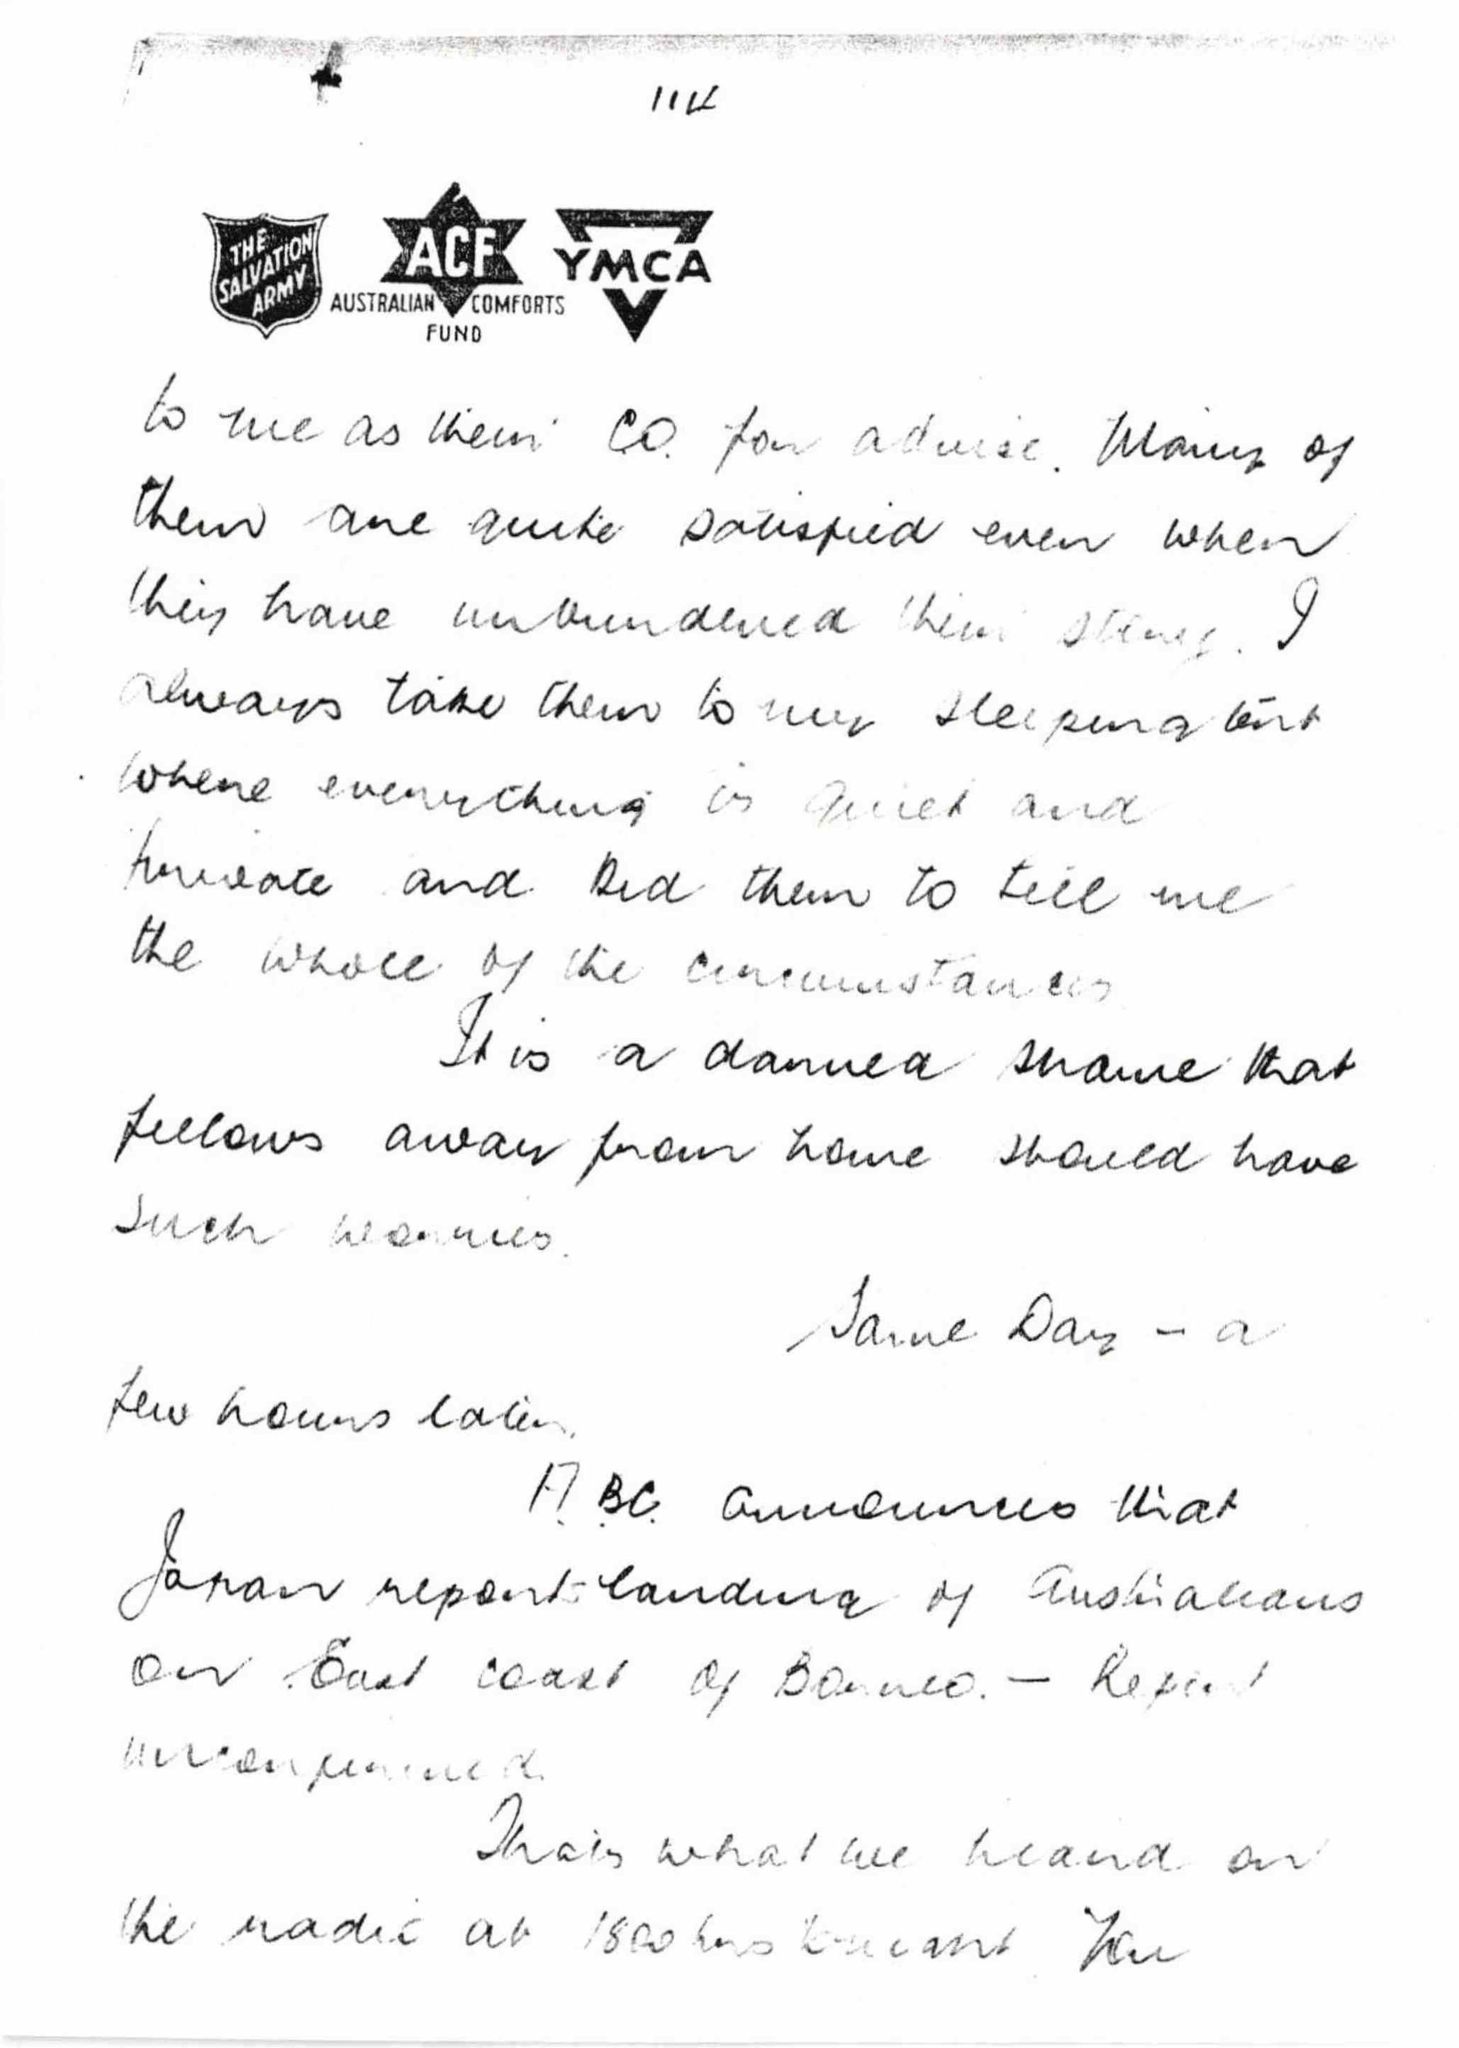 THE
SALVATION
ARMY
ACF
AUSTRALIAN COMFORTS
FUND
YMCA
to me as their CO. for advise. Many of
them are quite satisfied even when
they have unburdened their story. I
always take them to my sleeping tent
where everything is quiet and
private and bid them to tell me
the whole of the circumstances
It is a damned shame that
fellows away from home should have
such worries.
Same Day - a
few hours later.
A.B.C. announces that
Japan report landing of Australians
on East coast of Borneo. - Report
unconfirmed.
Thats what we heard on
the radio at 1800 hrs tonight. You